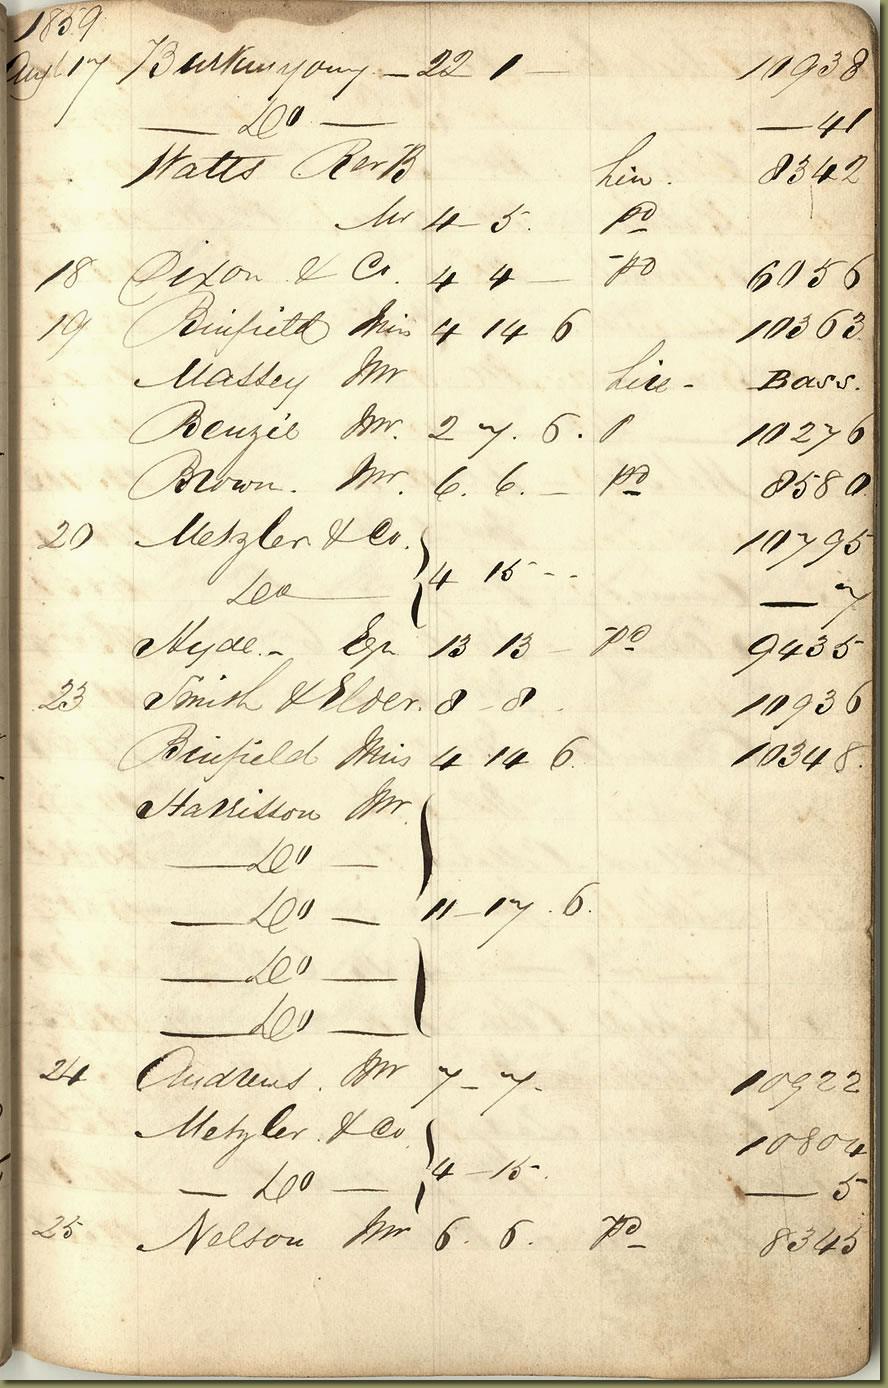 1859
Augt 17 Burkinyoung — 22 1 — 10938
— Do — — 41
Watts Rev B hire. 8342
Mr 4 5. pd
18 Dixon & Co. 4 4 — pd 6056
19 Binfield Miss 4 14 6 10363
Massey Mr hire - Bass.
Benzie Mr. 2 7. 6. 10276
Brown. Mr. 6. 6. — pd 8580
20 Metzler & Co. 10795
Do — 4 15 - - — 7
Hyde - Esqr 13 13 — pd 9435
23 Smith & Elder. 8 - 8 . 10936
Binfield Miss 4 14 6. 10348.
Harrisson Mr
— Do —
— Do — 11 — 17 . 6.
— Do —
— Do —
24 Andrews. Mr 7 - 7 - 10922
Metzler & Co 10804
— Do — 4 — 15 - — 5
25 Nelson Mr 6. 6. pd 8345